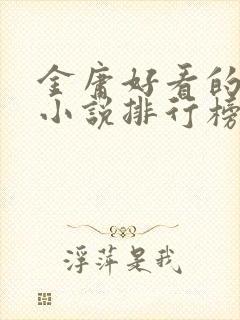 金庸好看的
小说排行榜
浮萍是我